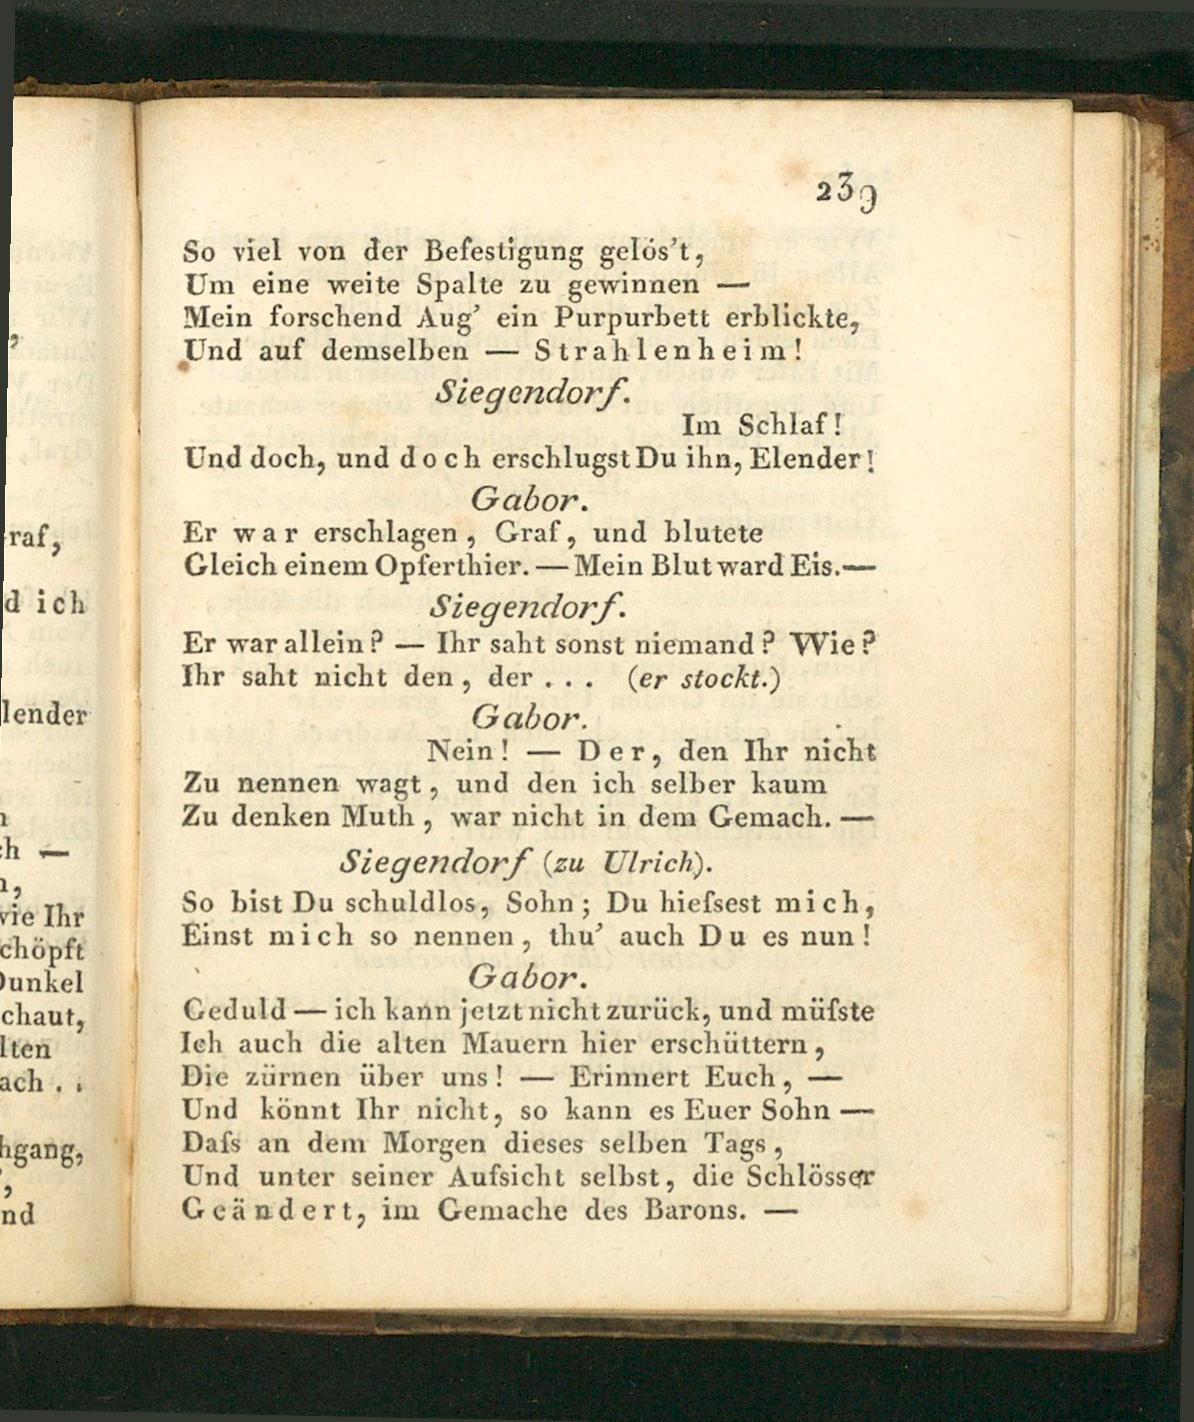 raf,
d ich
lender
ch —
vie Ihr
chöpft
Dunkel
chaut,
lten
ach . .
hgang,
nd
239
So viel von der Befestigung gelös't,
Um eine weite Spalte zu gewinnen —
Mein forschend Aug' ein Purpurbett erblickte,
Und auf demselben — Strahlenheim!
Siegendorf.
Im Schlaf!
Und doch, und doch erschlugst Du ihn, Elender!
Gabor.
Er war erschlagen, Graf, und blutete
Gleich einem Opferthier. — Mein Blut ward Eis. —
Siegendorf.
Er war allein? — Ihr saht sonst niemand? Wie?
Ihr saht nicht den, der . . . (er stockt.)
Gabor.
Nein! — Der, den Ihr nicht
Zu nennen wagt, und den ich selber kaum
Zu denken Muth, war nicht in dem Gemach. —
Siegendorf (zu Ulrich).
So bist Du schuldlos, Sohn; Du hieſsest mich,
Einst mich so nennen, thu' auch Du es nun!
Gabor.
Geduld — ich kann jetzt nicht zurück, und müſste
Ich auch die alten Mauern hier erschüttern,
Die zürnen über uns! — Erinnert Euch, —
Und könnt Ihr nicht, so kann es Euer Sohn —
Daſs an dem Morgen dieses selben Tags,
Und unter seiner Aufsicht selbst, die Schlösser
Geändert, im Gemache des Barons. —